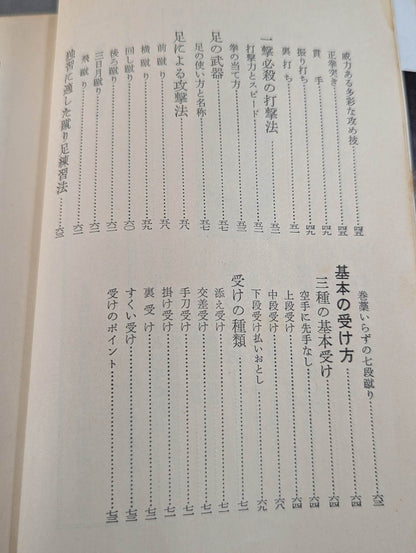 威力ある多彩な攻め技……四五
正拳突き……四五
貫手……四九
振り打ち……四九
裏打ち……五一
一撃必殺の打撃法……五二
打撃力とスピード……五二
拳の当て方……五三
足の武器……五七
足の使い方と名称……五七
足による攻撃法……五八
前蹴り……五八
横蹴り……五九
回し蹴り……六〇
後ろ蹴り……六一
三日月蹴り……六二
飛蹴り……六二
独習に適した蹴り足練習法……六三
巻藁いらずの七段蹴り……六三
基本の受け方……六四
三種の基本受け……六四
空手に先手なし……六四
上段受け……六四
中段受け……六八
下段受け払いおとし……六九
受けの種類……七一
添え受け……七一
交差受け……七一
手刀受け……七一
掛け受け……七一
裏受け……七二
すくい受け……七三
受けのポイント……七三